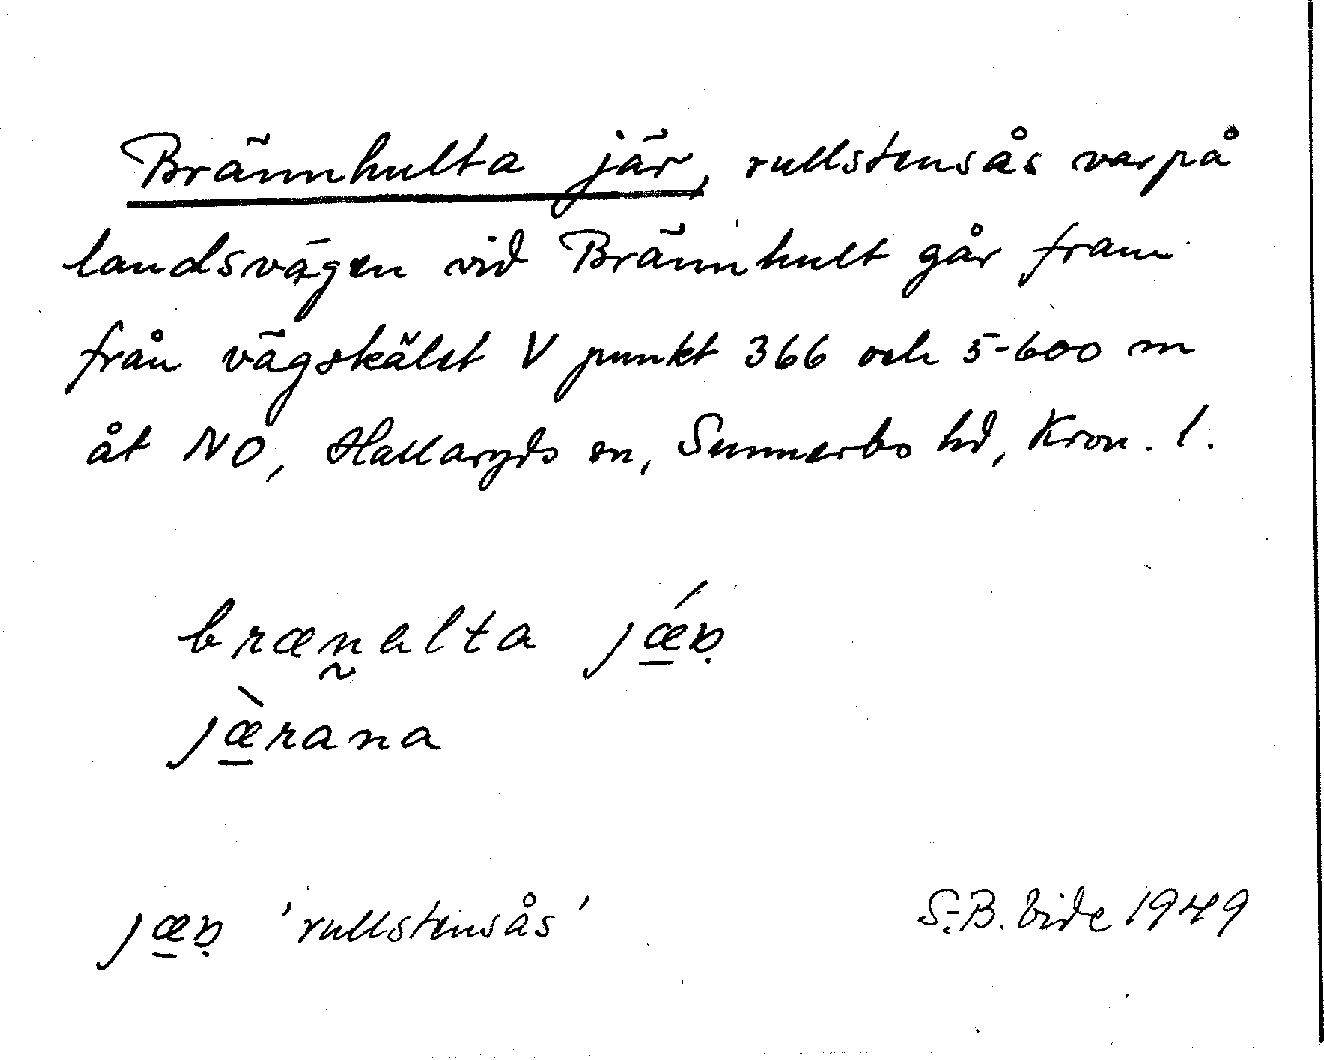 Brännhulta jär, rullstensås varpå
landsvägen vid Brännhult går fram
från vägskälet V punkt 366 och 5-600 m
åt NO, Hallaryds sn, Sunnerbo hd, Kron. l.
brænalta jǽ
jæ̀rana
'rullstensås'
S.-B. Vide 1949